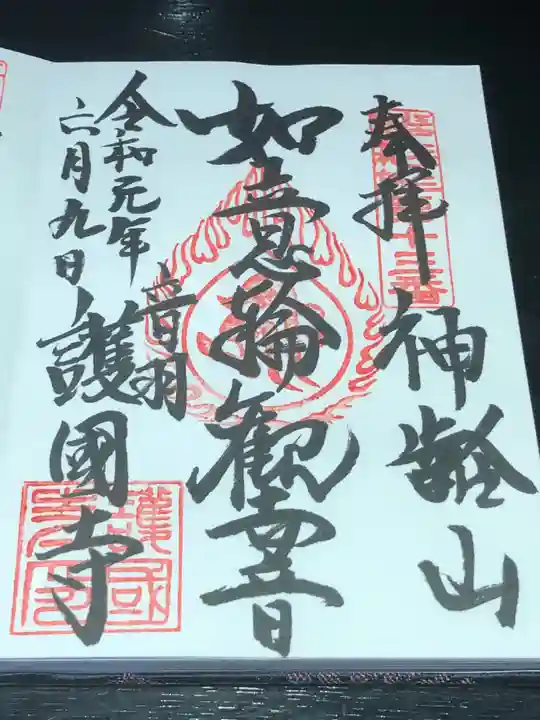 奉拝
神齢山
如意輪観世音
令和元年
六月九日
音羽
護國寺
護國寺印